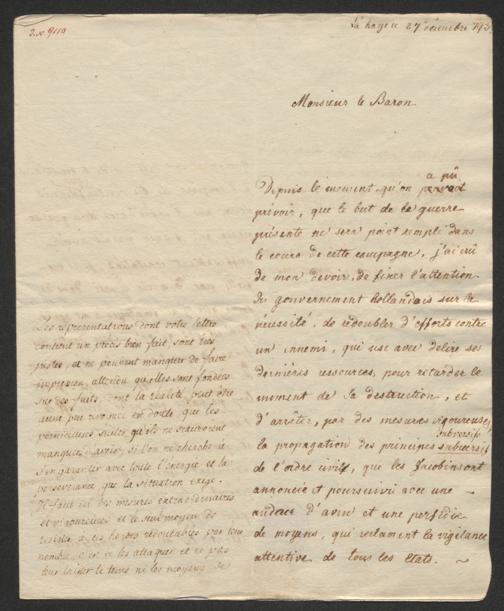 La haye le 27 décembre 793
Monsieur le Baron
a pû
Depuis le moment qu'on pouvoit
prévoir, que le but de la guerre
présente ne sera point rempli dans
le cours de cette campagne, j'ai crû
de mon devoir, de fixer l'attention
du gouvernement hollandais sur la
nécessité, de redoubler d'efforts contre
un ennemi, qui use avec délire ses
dernières ressources, pour retarder le
moment de sa destruction, et
d'arrêter, par des mesures vigoureuses
subversifs
la propagation des principes
de l'ordre civil, que les Jacobins ont
annoncée et poursuivi avec une
audace d'aveu et une perfidie
de moyens, qui reclament la vigilance
attentive de tous les Etats.
Les représentations dont votre lettre
contient un précis bien fait, sont très
justes, et ne peuvent manquer de faire
impression, attendu qu'elles sont fondées
sur des faits, dont la réalité peut être
par personne en doute que les
pernicieuses suites, qu'ils ne sauroient
manquer d'avoir, si l'on ne cherche à
s'en garantir avec toute l'énergie et la
persévérance que la situation exige.
Il faut ici des mesures extraordinaires
et vigoureuses et le seul moyen de
résister à ces hordes redoutables par leur
nombre, c'est de les attaquer et ne pas
leur laisser le tems ni les moyens de